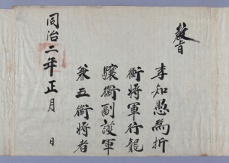 敎旨
李知愚爲折
衝將軍行龍
驤衛副護軍
兼五衛將者
同治二年正月 日